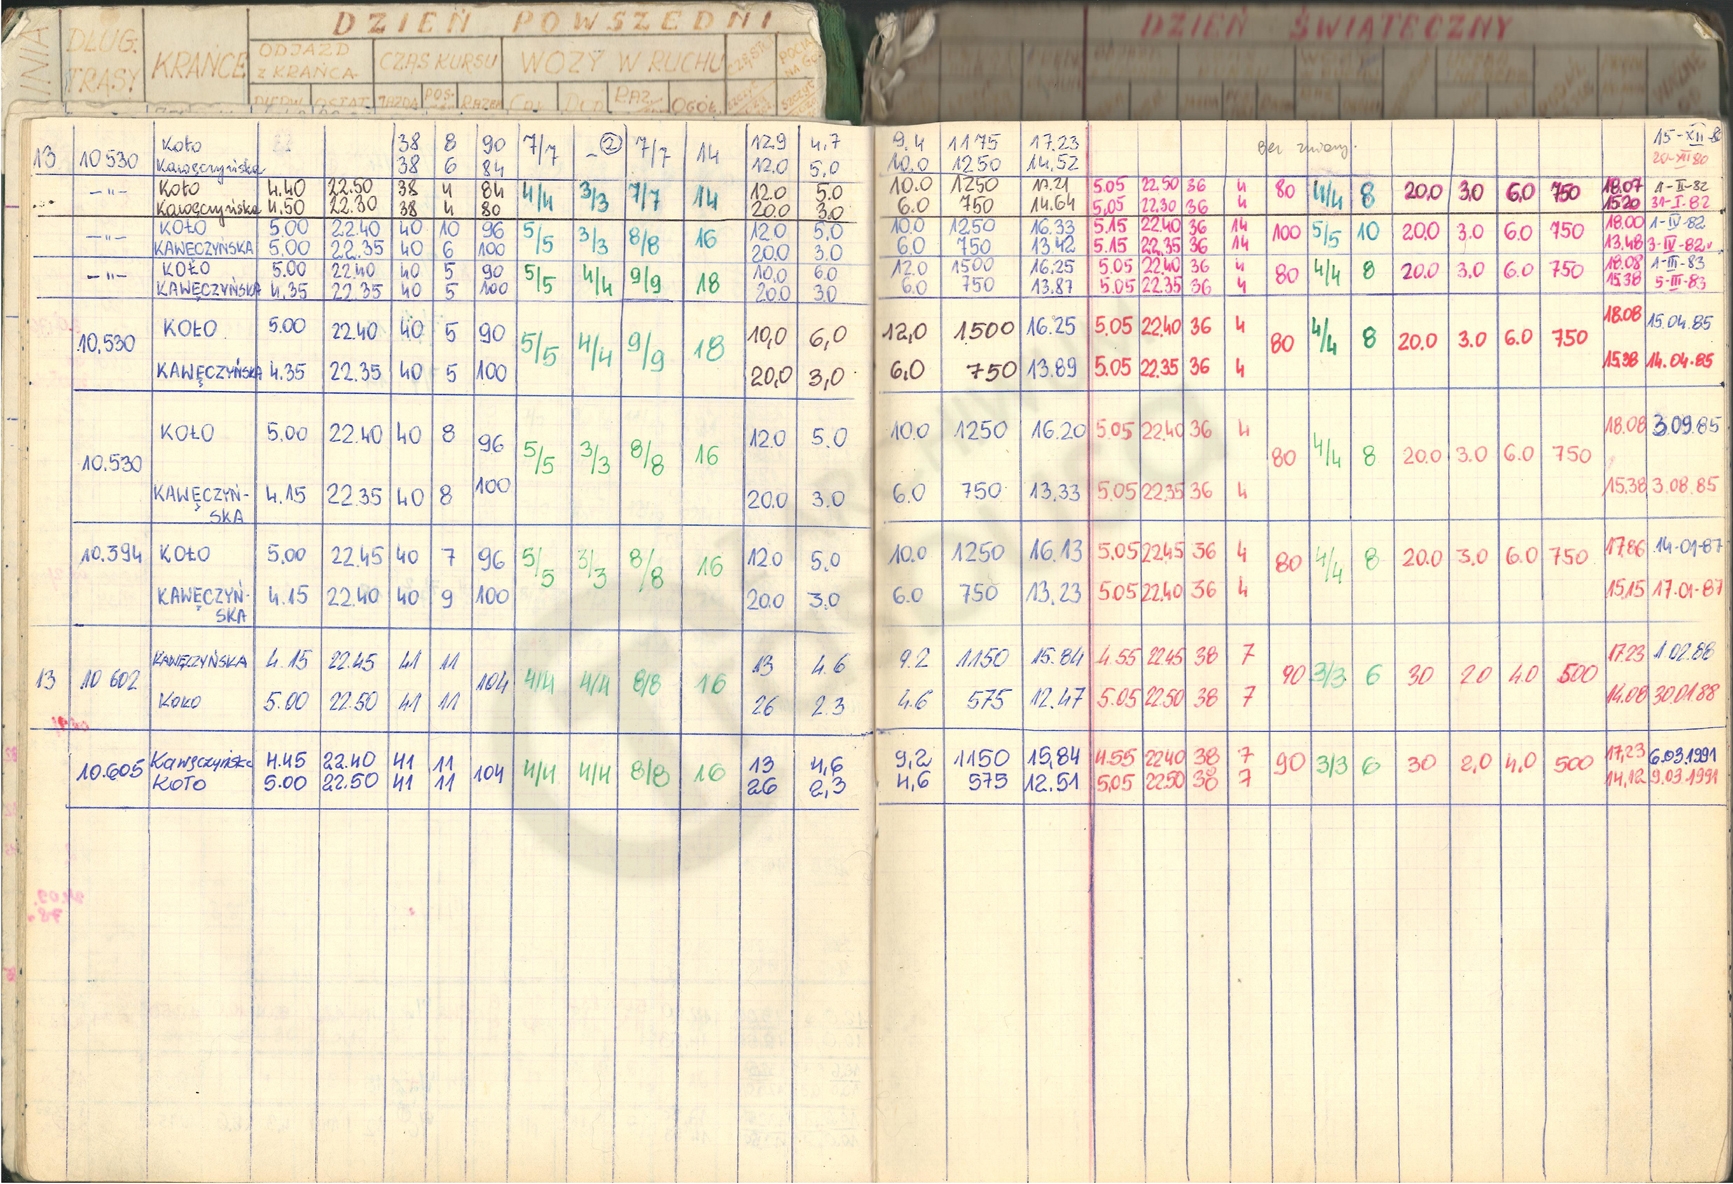 DZIEŃ POWSZEDNI
DZIEŃ ŚWIĄTECZNY
DŁUG. TRASY KRAŃCE ODJAZD Z KRAŃCA CZAS KURSU WOZY W RUCHU
Koło 38 8 90 7/7 - ② 7/7 14 12.9 4.7 9.4 1175 17.23 15-XII-8
13 10530 Kawęczyńska 38 6 84 12.0 5,0 10.0 1250 14.52 20-XII 80
-"- Koło 4.40 22.50 38 4 84 4/4 3/3 7/7 14 12.0 5.0 10.0 1250 17.21 5.05 22.50 36 4 80 4/4 8 20.0 3.0 6.0 750 18.07 1-II-82
Kawęczyńska 4.50 22.30 38 4 80 20.0 3.0 6.0 750 14.64 5,05 22.30 36 4 15.20 31-I-82
-"- KOŁO 5.00 22.40 40 10 96 5/5 3/3 8/8 16 12.0 5,0 10.0 1250 16.33 5.15 22.40 36 14 100 5/5 10 20.0 3.0 6.0 750 18.00 1-IV-82
KAWĘCZYŃSKA 5.00 22.35 40 6 100 20.0 3.0 6.0 750 13.42 5.15 22.35 36 14 13,48 3-IV-82
-"- KOŁO 5.00 22.40 40 5 90 5/5 4/4 9/9 18 10.0 6.0 12.0 1500 16.25 5.05 22.40 36 4 80 4/4 8 20.0 3.0 6.0 750 18.08 1-III-83
KAWĘCZYŃSKA 4,35 22.35 40 5 100 20.0 3.0 6.0 750 13.87 5.05 22.35 36 4 15.38 5-III-83
10,530 KOŁO 5.00 22.40 40 5 90 5/5 4/4 9/9 18 10,0 6,0 12,0 1500 16.25 5,05 22.40 36 4 80 4/4 8 20.0 3.0 6.0 750 18.08 15.04.85
KAWĘCZYŃSKA 4.35 22.35 40 5 100 20,0 3,0 6,0 750 13.89 5.05 22.35 36 4 15.38 14.04.85
10.530 KOŁO 5,00 22.40 40 8 96 5/5 3/3 8/8 16 12.0 5.0 10.0 1250 16.20 5.05 22.40 36 4 80 4/4 8 20.0 3.0 6.0 750 18.08 3.09.85
KAWĘCZYŃ-
SKA 4.15 22.35 40 8 100 20.0 3.0 6.0 750 13,33 5.05 22.35 36 4 15.38 3.08.85
10.394 KOŁO 5,00 22.45 40 7 96 5/5 3/3 8/8 16 12.0 5,0 10.0 1250 16.13 5.05 22.45 36 4 80 4/4 8 20.0 3.0 6.0 750 17.86 14-01-87
KAWĘCZYŃ-
SKA 4.15 22.40 40 9 100 20.0 3.0 6.0 750 13,23 5.05 22.40 36 4 15.15 17.01-87
13 10 602 KAWĘCZYŃSKA 4.15 22.45 41 11 104 4/4 4/4 8/8 16 13 4.6 9.2 1150 15.84 4.55 22.45 38 7 90 3/3 6 30 2.0 4.0 500 17.23 1.02.88
Koło 5.00 22.50 41 11 26 2.3 4.6 575 12.47 5.05 22.50 38 7 14.08 30.01.88
10.605 Kawęczyńska 4.45 22.40 41 11 104 4/4 4/4 8/8 16 13 4,6 9,2 1150 15,84 4.55 22.40 38 7 90 3/3 6 30 2,0 4,0 500 17,23 6.03.1991
Koło 5.00 22.50 41 11 26 2,3 4,6 575 12.51 5,05 22.50 38 7 14,12 9.03.1991